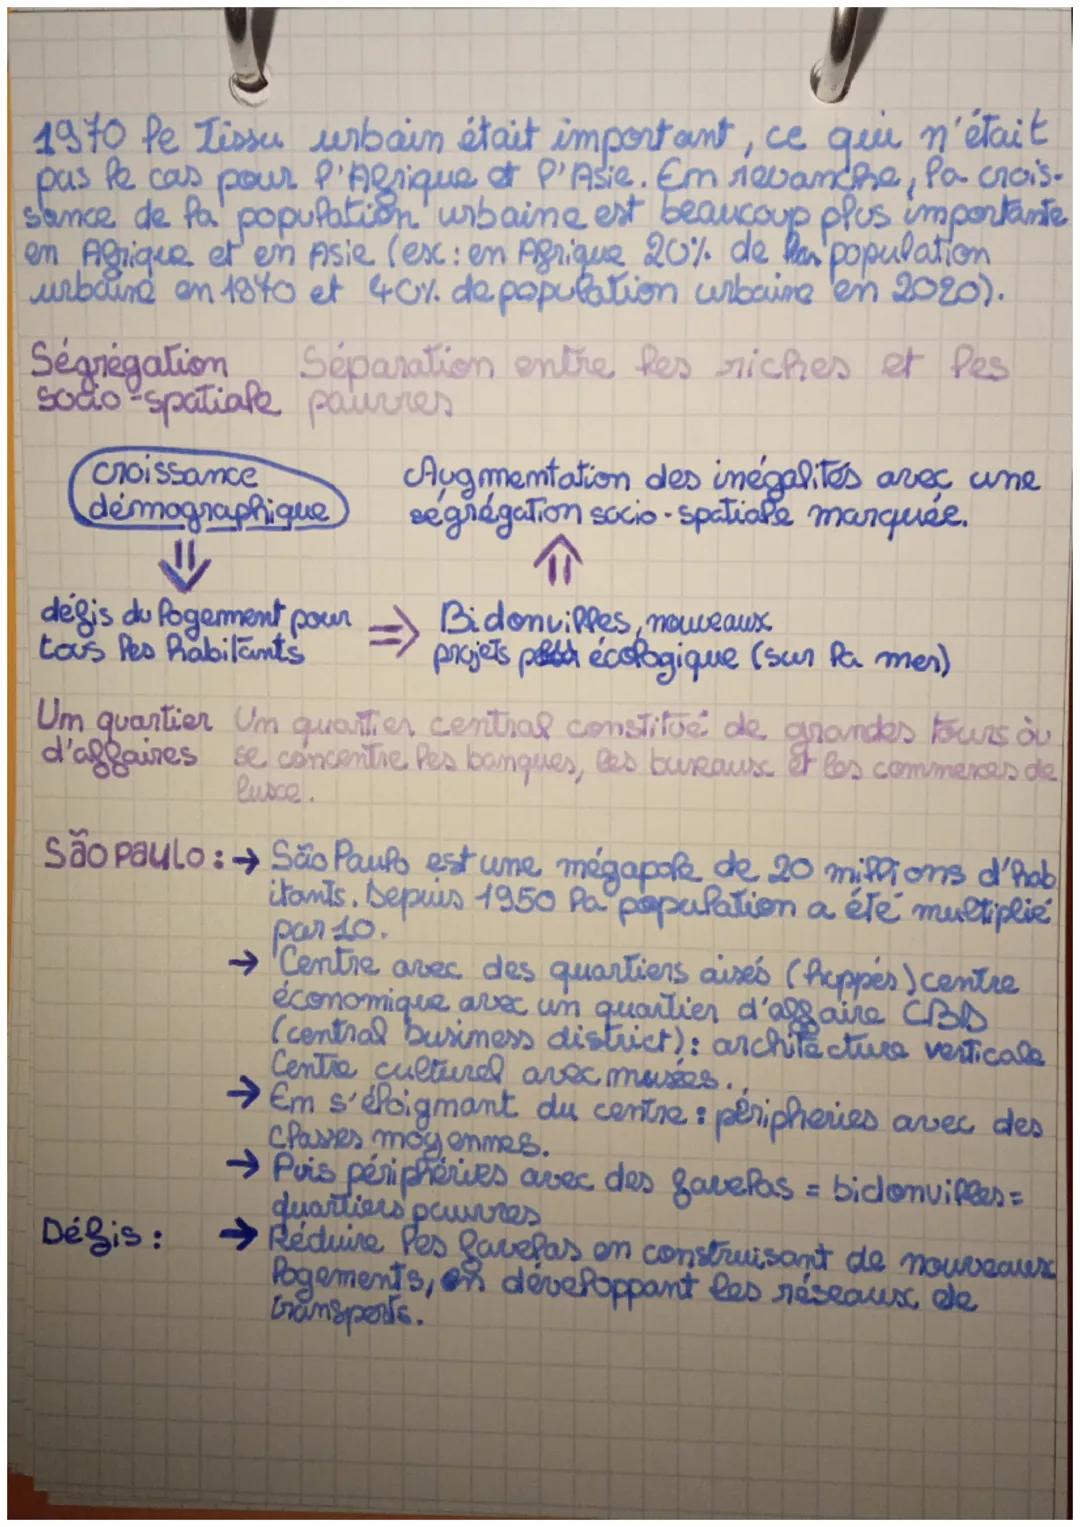 1970 le tissu urbain était important, ce qui n'était
pas le cas pour l'Afrique et l'Asie. En revanche, la crois-
sance de la population urbaine est beaucoup plus importante
en Afrique et en Asie (ex: en Afrique 20% de la population
urbaine en 1870 et 40% de population urbaine en 2020).
Ségrégation Séparation entre les riches et les
socio-spatiale pauvres
croissance
démographique
Augmentation des inégalités avec une
ségrégation socio-spatiale marquée.
défis du logement pour
tous les habitants
⇒ Bidonvilles, nouveaux
projets écologique (sur la mer)
Un quartier Un quartier central constitué de grandes tours où
d'affaires se concentre les banques, les bureaux et les commerces de
luxe.
São Paulo: → São Paulo est une mégapole de 20 millions d'hab
itants. Depuis 1950 la population a été multiplié
par 10.
→ Centre avec des quartiers aisés (huppés) centre
économique avec un quartier d'affaire CBD
(central business district): architecture verticale
Centre culturel avec musées.
→ En s'éloignant du centre: péripheries avec des
classes moyennes.
→ Puis périphéries avec des favelas = bidonvilles =
quartiers pauvres
Défis: → Réduire les favelas en construisant de nouveaux
logements, en développant les réseaux de
transports.